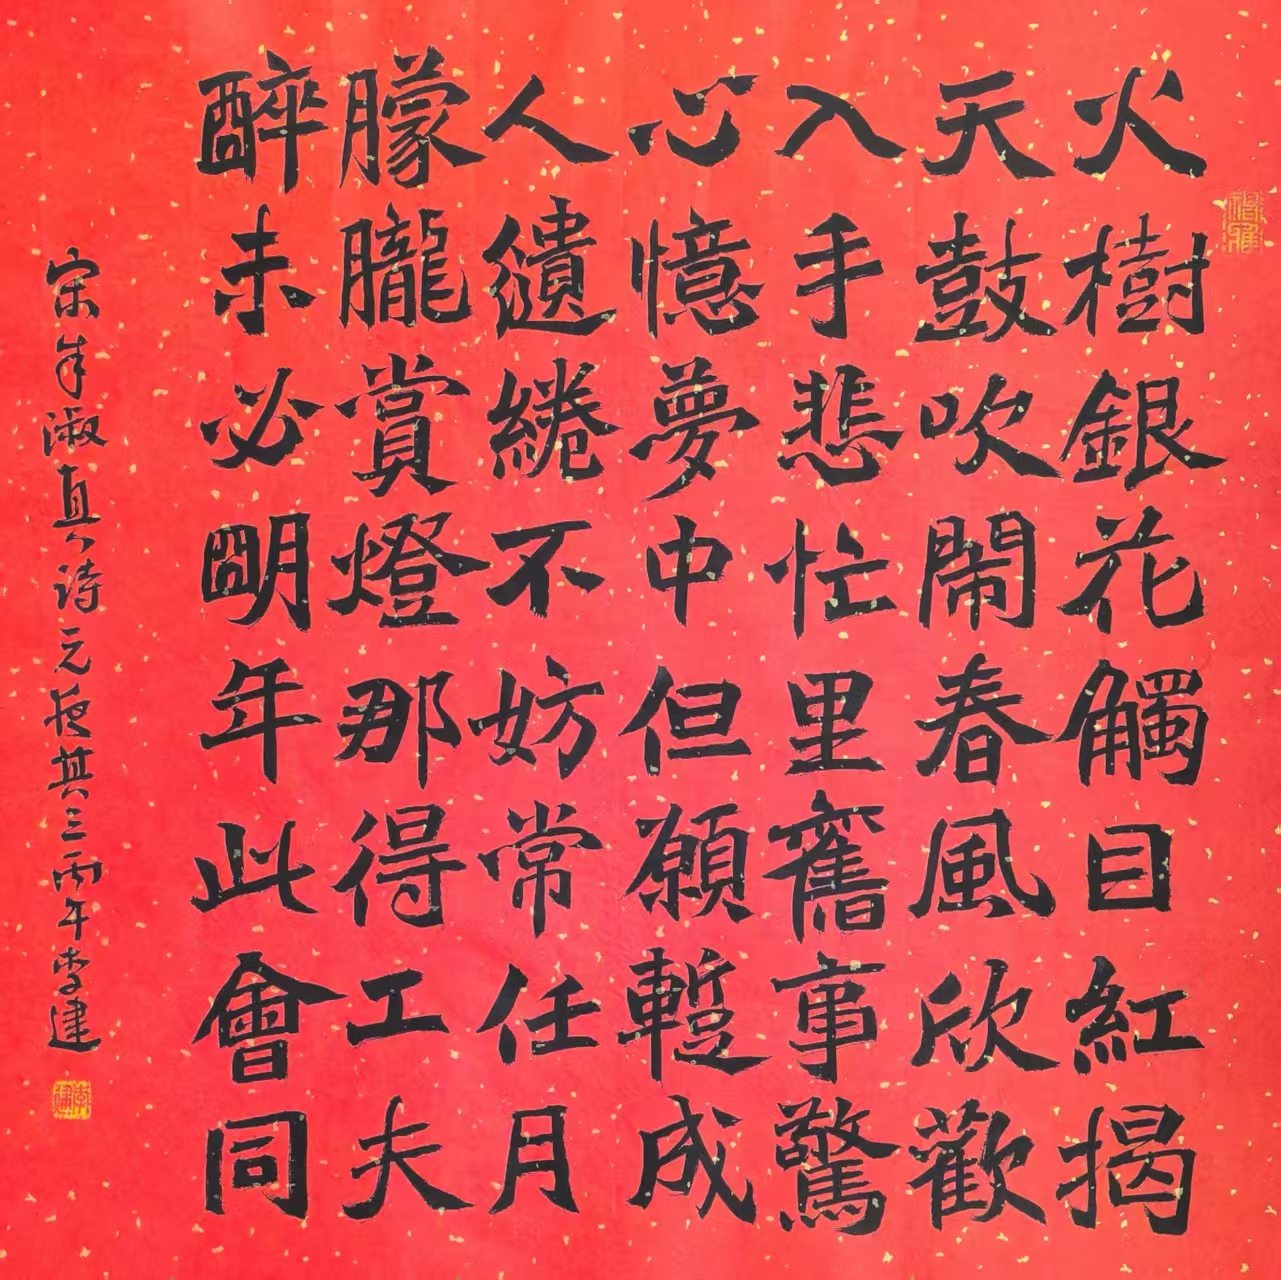 火樹銀花觸目紅揭
天鼓吹鬧春風欣歡
入手悲忙里舊事驚
心憶夢中但願暫成
人繾綣不妨常任月
朦朧賞燈那得工夫
醉未必明年此會同
宋朱淑真诗元夜其三丙午李建
李建